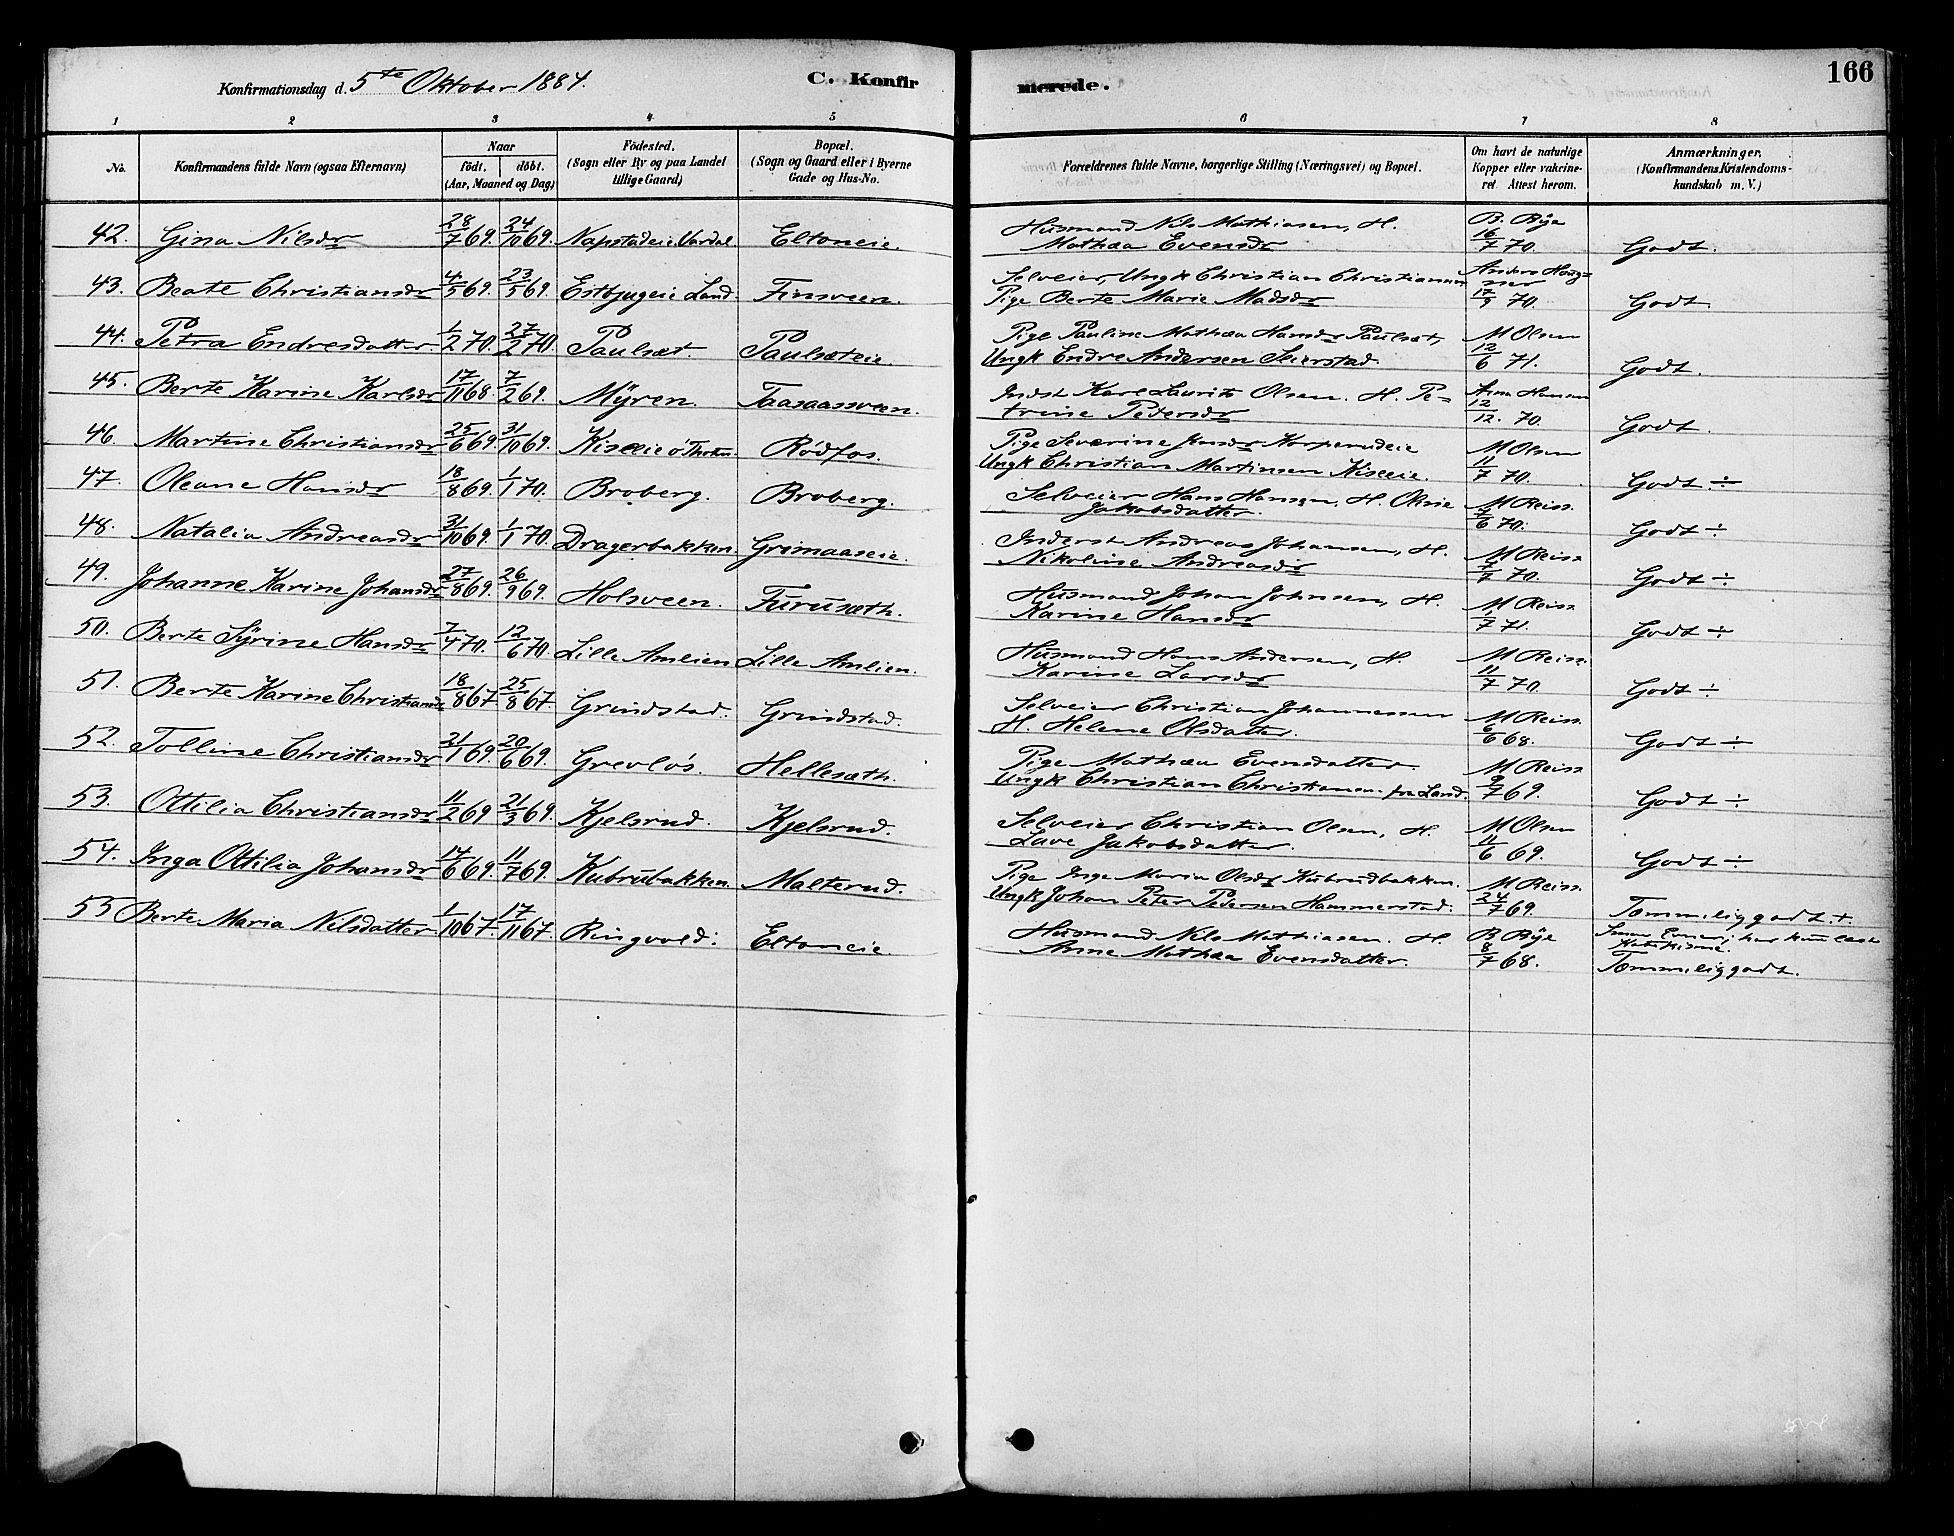 Konfirmationsdag d. 5te Oktober 1884.
C. Konfir
merede.
166
1 2 3 4 5 6 7 8
No.
Konfirmandens fulde Navn (ogsaa Efternavn)
Naar
födt. döbt.
(Aar, Maaned og Dag)
Födested.
(Sogn eller By og paa Landet
tillige Gaard)
Bopæl.
(Sogn og Gaard eller i Byerne
Gade og Hus-No.
Forældrenes fulde Navne, borgerlige Stilling (Næringsvei) og Bopæl.
Om havt de naturlige
Kopper eller vakcine-
ret. Attest herom.
Anmærkninger.
(Konfirmandens Kristendoms-
kundskab m. V.)
42. Gina Nilsdr 28/7 69. 24/10 69. Napstadeie Vardal Eltoneie. Husmand Nils Mathiasen, H. B. Bye
Mathea Evensdr 16/7 70. Godt.
43. Beate Christiansdr 4/5 69. 23/5 69. Estbygeie Land. Finsveen. Selveier, Ungk Christian Christiansen Anders Haug-
Pige Berte Marie Madsdr ner 17/9 70. Godt.
44. Petra Endresdatter. 1/2 70. 27/2 70. Paulsæt. Paulsæteie. Pige Pauline Mathea Hansdr Paulsæt, M Olsen
Ungk Endre Andersen Seierstad. 12/6 71. Godt.
45. Berte Karine Karlsdr 17/11 68. 7/2 69. Myren. Taasaasveen. Inderst Karl Laurits Olsen. H. Pe- Arne Hansen
trine Pedersdr 12/12. 70. Godt.
46. Martine Christiansdr 25/6 69. 31/10 69. Kiseeie ø Thoten. Rødfos. Pige Severine Jensdr Korperudeie M Olsen
Ungk Christian Martinsen Kiseeie. 11/7 70. Godt. ÷
47. Oleane Hansdr 18/8 69. 1/1 70. Broberg. Broberg. Selveier Hans Hansen, H. Oline M Reiss.
Jakobsdatter. 7/6 70. Godt ÷
48. Natalia Andreasdr 31/10 69. 1/1 70. Dragerbakken. Grimaaseie. Inderst Andreas Johansen, H. M Reiss.
Nikoline Andreasdr 4/7 70. Godt ÷
49. Johanne Karine Johansdr 27/8 69. 26/9 69. Holsveen. Furusæth. Husmand Johan Johnsen, H. M Reiss.
Karine Hansdr 1/7 71. Godt ÷
50. Berte Syrine Hansdr 7/4 70. 12/6 70. Lille Amlien Lille Amlien. Husmand Hans Andersen, H. M Reiss.
Karine Larsdr 11/7 70. Godt ÷
51. Berte Karine Christiansdr 18/8 67 25/8 67. Grindstad. Grindstad. Selveier Christian Johannessen M Reiss.
H. Helene Olsdatter. 6/6 68. Godt ÷
52. Tolline Christiansdr 21/1 69. 20/6 69. Grevløs. Hellesæth. Pige Mathea Evensdatter. M Reiss
Ungk Christian Christiansen fra Land. 9/7 69. Godt ÷
53. Ottilia Christiansdr 11/2 69 21/3 69. Kjelsrud. Kjelsrud. Selveier Christian Olsen, H. M Olsen
Lave Jakobsdatter. 11/6 69. Godt ÷
54. Inga Ottilia Johansdr 14/6 69. 11/7 69. Kubrubakken. Malterud. Pige Inge Maria Olsdr Kubrudbakken. M Reiss.
Ungk Johan Peter Pedersen Hammerstad. 24/7 69. Temmelig godt. +
55 Berte Maria Nilsdatter. 1/10 67. 17/11 67. Ringvold. Eltoneie. Husmand Nils Mathiasen. H. B Bye Smaa Evner; har kun læst
Anne Mathea Evensdatter. 8/7 68. Katekisme. Temmelig godt.